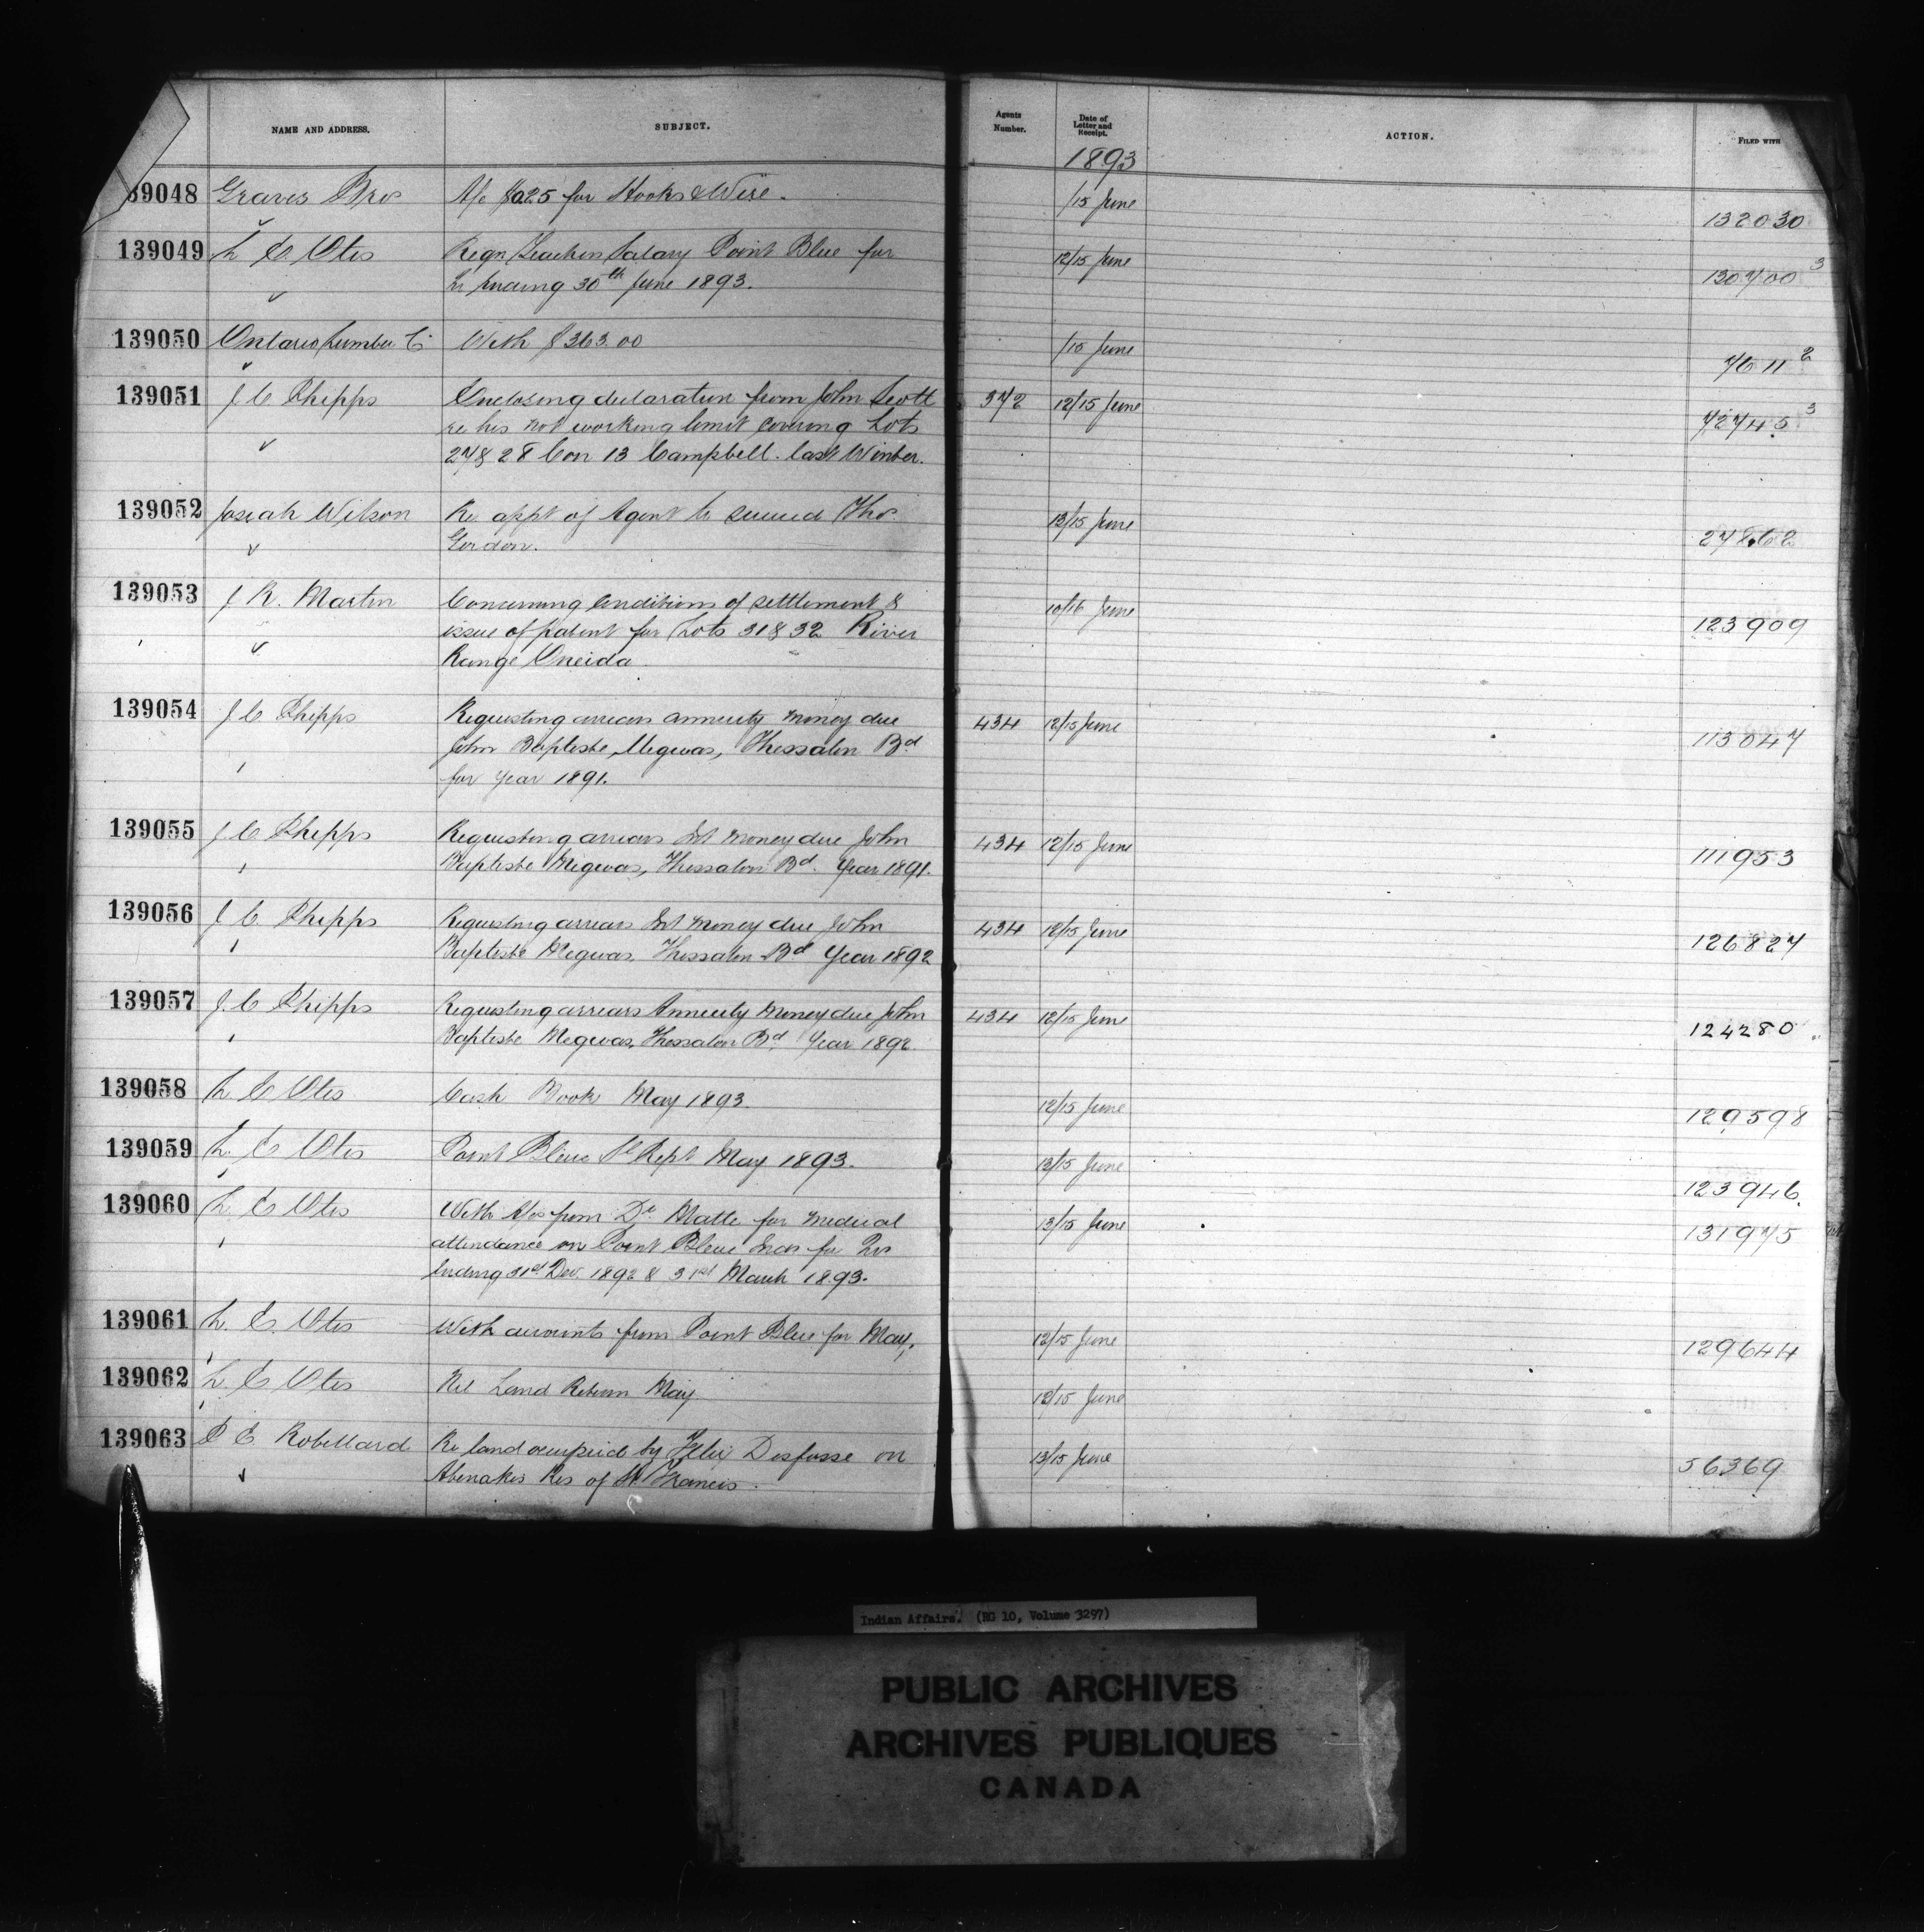 NAME AND ADDRESS. SUBJECT. Agents Number. Date of Letter and Receipt. ACTION. FILED WITH
1893
39048 Graves Bros A/c $0.25 for Hooks & Wire. /15 June 132030
139049 L E Otis Reqn Teachers Salary Point Bleue for 12/15 June 130700 3
Qr Ending 30th June 1893.
139050 Ontario Lumber Co With $363.00 /15 June 7611 2
139051 J C Phipps Enclosing declaration from John Scott 372 12/15 June 72745 3
re his not working limit covering Lots
27 & 28 Con 13 Campbell. last Winter.
139052 Josiah Wilson Re appt of Agent to succeed Thos. 13/15 June 27862
Gordon.
139053 J R. Martin Concerning Conditions of settlement & 10/16 June 123909
issue of patent for Lots 31 & 32 River
Range Oneida
139054 J C Phipps Requesting arrears annuity money due 434 12/15 June 113047
John Baptiste Megwas, Thessalon Bd
for year 1891.
139055 J. C Phipps Requesting arrears Int money due John 434 12/15 June 111953
Baptiste Megwas, Thessalon Bd. Year 1891.
139056 J C. Phipps Requesting arrears Int money due John 434 12/15 June 126827
Baptiste Megwas, Thessalon Bd Year 1892
139057 J. C Phipps Requesting arrears Annuity Money due John 434 12/15 June 124280
Baptiste Megwas, Thessalon Bd. Year 1892.
139058 L E Otis Cash Book May 1893. 12/15 June 129598
139059 L. E Otis Point Bleue Sl Rept May 1893. 13/15 June 123946.
139060 L E Otis With A/cs from Dr. Matte for medical 13/15 June 131975
attendance on Point Bleue Inds for Qrs
Ending 31st Dec. 1892 & 31st March 1893.
139061 L. E. Otis With accounts from Point Bleue for May, 12/15 June 129644
139062 L E Otis Nil Land Return May. 12/15 June
139063 P E Robillard Re land occupied by Felix Desfosse on 13/15 June 56369
Abenakis Res of St Francis.
Indian Affairs. (RG 10, Volume 3297)
PUBLIC ARCHIVES
ARCHIVES PUBLIQUES
CANADA